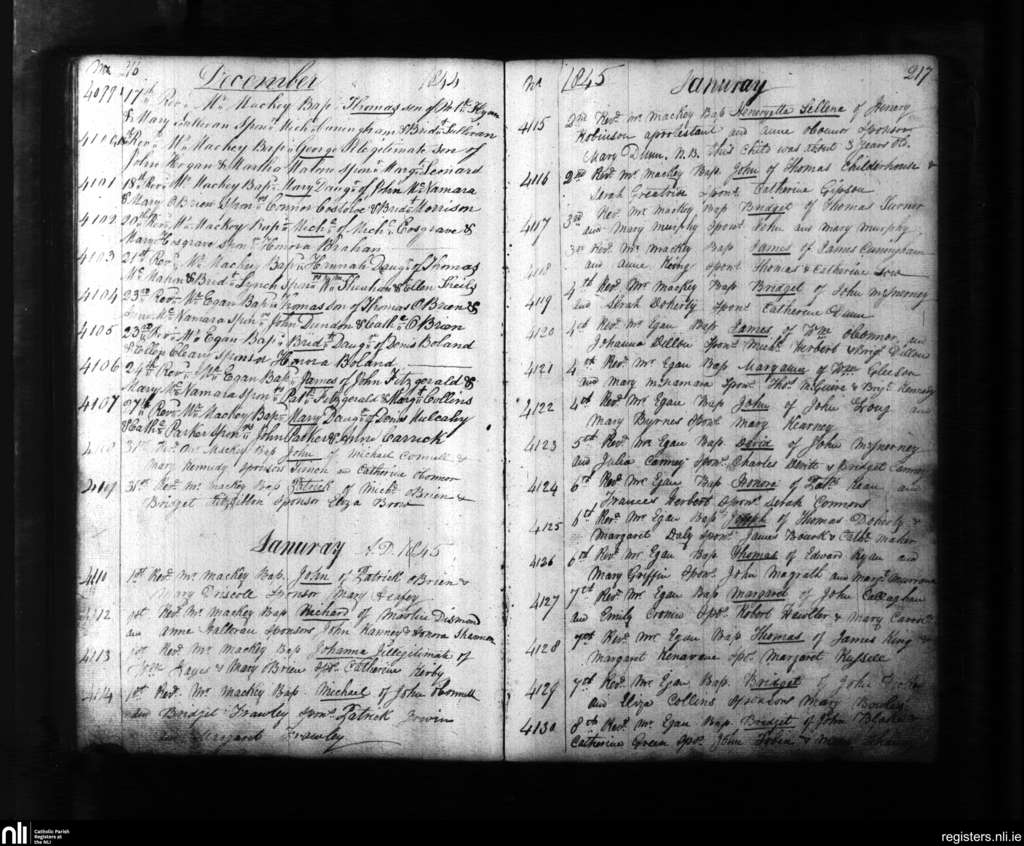 No. 216 December 1844
4099 17th Revd Mr Mackey Bapd Thomas son of Patk Hogan
& Mary Sullivan Sponrs Mich Cunningham & Bridt Sullivan
4100 Revd Mr Mackey Bapd George Illegitimate son of
John Hogan & Martha Malon Sponr Margt Leonard
4101 18th Revd Mr Mackey Bapd Mary Daugr of John McNamara
& Mary O Brien Sponrs Connor Costoloe & Bridt Morrison
4102 20th Revd Mr Mackey Bapd Michl of Michl Cosgrave &
Mary Cosgrave Sponr Honora Brahan
4103 21st Revd Mr Mackey Bapd Hannah Daugr of Thomas
McMahon & Bridt Lynch Sponrs Wm Sheehan & Ellen Sheils
4104 23rd Revd Mr Egan Bapd Thomas son of Thomas O Brien &
McNamara Sponrs John Dundon & Cathe O Brien
4105 23rd Revd Mr Egan Bapd Bridt Daugr of Denis Boland
& Ellen Cleary Sponsor Honora Boland
4106 24th Revd Mr Egan Bapd James of John Fitzgerald &
Mary McNamara Sponrs Patt Fitzgerald & Margt Collins
4107 27th Revd Mr Mackey Bapd Mary Daugr of Denis Mulcahy
& Cathe Parker Sponrs John Parker & Anne Carrick
4108 31st Revd Mr Mackey Bap John of Michael Connell &
Mary Kennedy sponsors Simon and Catherine Connor
4109 31st Revd Mr Mackey Bap Patrick of Michl Brien &
Bridget Fitzgibbon Sponsor Eliza Brown
Januray A.D. 1845
4110 1st Revd Mr Mackey Bap. John of Patrick OBrien &
Mary Driscole Sponsor Mary Heafey
4112 1st Revd Mr Mackey Bap Richard of Martin Dismond
and Anne Halloran Sponsors John Kanney & Honora Shannon
4113 1st Revd Mr Mackey Bap Johanna Illegitimate of
Wm Hayes & Mary Brien spr Catherine Kerby
4114 1st Revd Mr Mackey Bap Michael of John Connell
and Bridget Frawley sponr Patrick Irwin
and Margaret Frawley
No 1845 Januray 217
4115 2nd Revd Mr Mackey Bap Henryetta Sellena of Henery
Robinson a protestant and Anne OConnor Sponsor
Mary Dunn. N.B. this Child was about 3 years old.
4116 2nd Revd Mr Mackey Bap John of Thomas Childerhouse &
Sarah Sponr Catherine Gipson
4117 3rd Revd Mr Mackey Bap Bridget of Thomas Turner
and Mary Murphy sponrs John and Mary Murphy
4118 3rd Revd Mr Mackey Bap James of James Cunningham
and Anne King sponrs Thomas & Catherine
4119 4th Revd Mr Mackey Bap Bridget of John McInerney
and Sarah Doherty sponr Catherine Dunn
4120 4th Revd Mr Egan Bap James of Wm OConnor and
Johanna Dillon sponr Michl Herbert & Dillon
4121 4th Revd Mr Egan Bap Margaret of Wm Gleeson
and Mary McNamara sponrs Thos McGuire & Kennedy
4122 4th Revd Mr Egan Bap John of John Long and
Mary Byrnes sponr Mary Kearney
4123 5th Revd Mr Egan Bap David of John McInerney
and Julia Canney sponrs Charles Devitt & Bridget Canney
4124 6th Revd Mr Egan Bap Honora of Patk Kean and
Frances Herbert sponr Sarah Connors
4125 6th Revd Mr Egan Bap Joseph of Thomas Doherty &
Margaret Daly sponrs James Bourk & Cathe Maher
4126 6th Revd Mr Egan Bap Thomas of Edward Ryan and
Mary Griffin sponrs John Magrath and Margt
4127 7th Revd Mr Egan Bap Margaret of John Callaghan
and Emily Cronin sprs Robert Hewitt & Mary
4128 7th Revd Mr Egan Bap Thomas of James King &
Margaret Kenavane spr Margaret Russell
4129 7th Revd Mr Egan Bap Bridget of John
and Eliza Collins sponsors Mary
4130 8th Revd Mr Egan Bap Bridget of John Blake &
Catherine Green sprs John &
nli Catholic Parish
Registers at
the NLI
registers.nli.ie